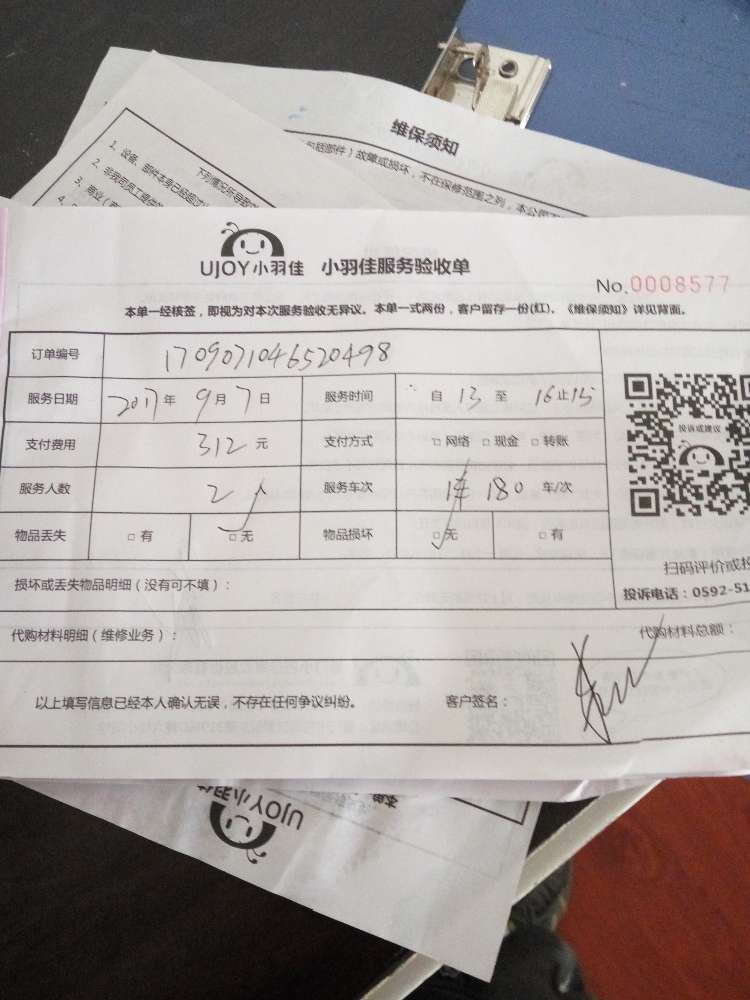 维保须知
下列情况所导致
包括部件）故障或损坏，不在保修范围之列，本公司
1、设备、部件本身已经超过
2、非我司员工提供的
3、商业（
4、
UJOY小羽佳 小羽佳服务验收单
No.0008577
本单一经核签，即视为对本次服务验收无异议。本单一式两份，客户留存一份(红)。《维保须知》详见背面。
订单编号 1709071046520498
服务日期 2017年 9月 7日 服务时间 自 13 至 16止15
支付费用 312 元 支付方式 □ 网络 □ 现金 □ 转账
投诉或建议
服务人数 2人 服务车次 180 车/次
物品丢失 □ 有 □ 无 物品损坏 □ 无 □ 有
扫码评价或投
损坏或丢失物品明细（没有可不填）：
投诉电话：0592-51
代购材料明细（维修业务）： 代购材料总额：
以上填写信息已经本人确认无误，不存在任何争议纠纷。 客户签名：
UJOY小羽